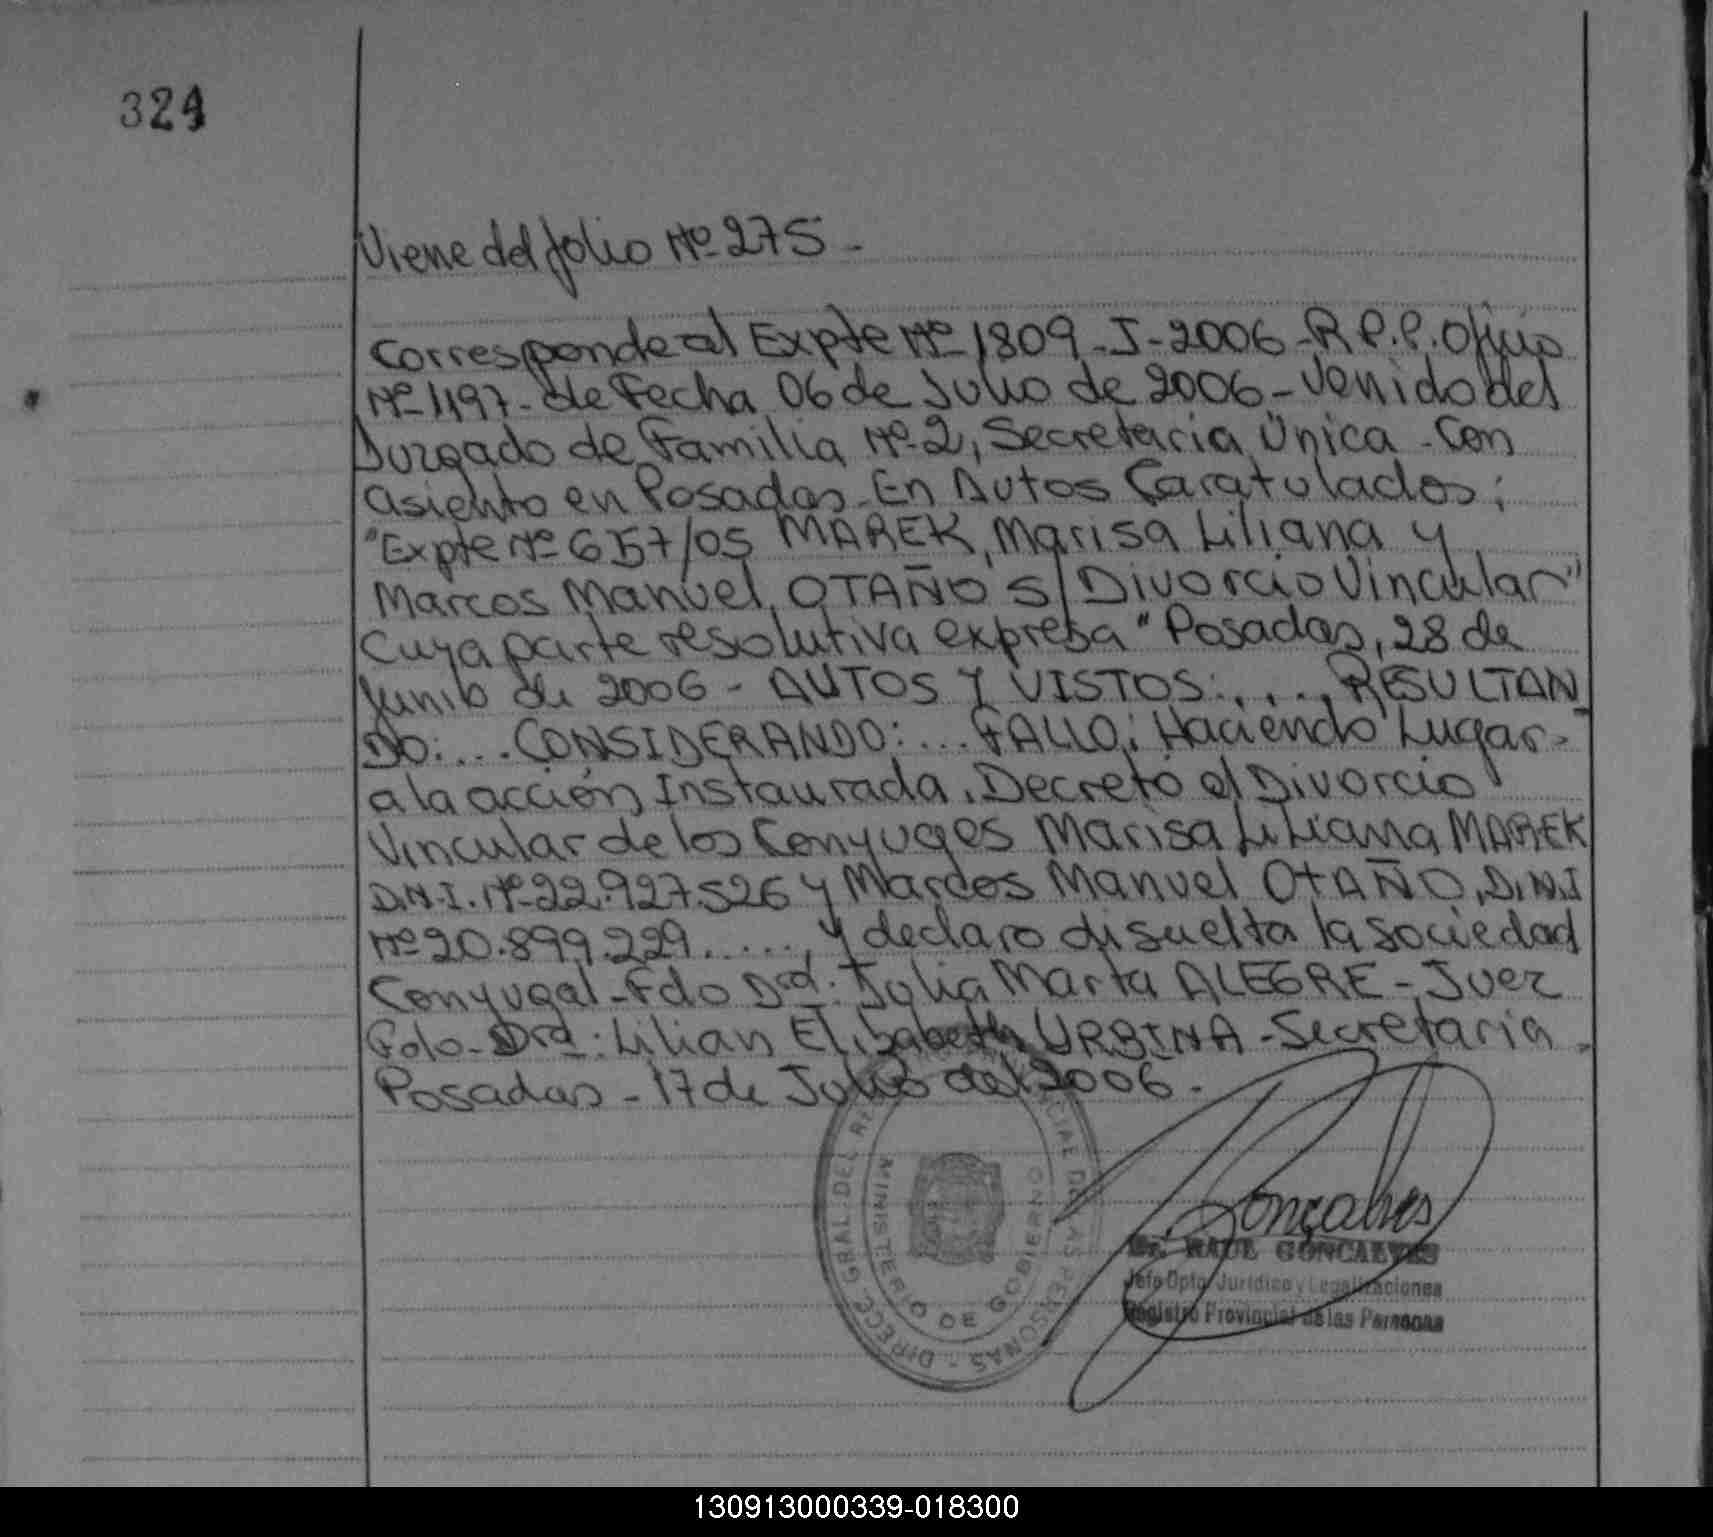 324
Viene del folio Nº 275 -
Corresponde al Expte Nº 1809-J-2006-R.P.P. Oficio
Nº 1197- de Fecha 06 de Julio de 2006- Venido del
Juzgado de Familia Nº 2, Secretaria Única - Con
asiento en Posadas- En Autos Caratulados:
"Expte Nº 657/05 MAREK, Marisa Liliana y
Marcos Manuel OTAÑO S/Divorcio Vincular"
Cuya parte resolutiva expresa "Posadas, 28 de
Junio de 2006 - AUTOS Y VISTOS:.... RESULTAN
DO:... CONSIDERANDO:... FALLO: Haciendo Lugar-
a la acción Instaurada, Decreto el Divorcio
Vincular de los Conyuges Marisa Liliana MAREK
D.N.I. Nº 22.927.526 y Marcos Manuel OTAÑO, D.N.I
Nº 20.899.229....., y declaro disuelta la sociedad
Conyugal- Fdo Dra. Julia Marta ALEGRE - Juez
Fdo- Dra: Lilian Elisabeth URBINA - Secretaria.
Posadas - 17 de Julio del 2006.
DIRECC. GRAL. DEL REG. PROVINCIAL DE LAS PERSONAS -
MINISTERIO DE GOBIERNO
Gonçalves
Dr. RAUL GONCALVES
Jefe Dpto. Jurídico y Legalizaciones
Registro Provincial de las Personas
130913000339-018300